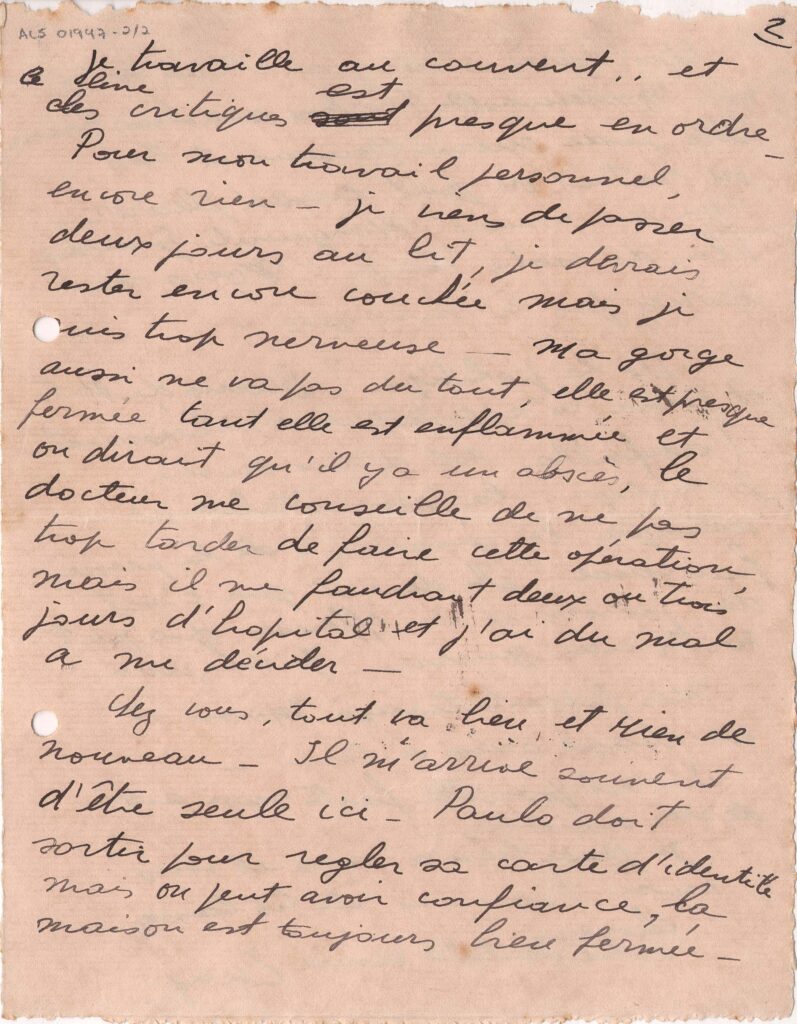 ALS 01947-2/2
2
je travaille au couvent.. et
Ce livre
des critiques sont est presque en ordre -
Pour mon travail personnel,
encore rien - je viens de passer
deux jours au lit, je devrais
rester encore couchée mais je
suis trop nerveuse - Ma gorge
aussi ne va pas du tout, elle est presque
fermée tant elle est enflammée et
on dirait qu'il y a un abscès, le
docteur me conseille de ne pas
trop tarder de faire cette opération,
mais il me faudrait deux ou trois
jours d'hopital, et j'ai du mal
a me décider -
Chez vous, tout va bien, et rien de
nouveau - Il m'arrive souvent
d'être seule ici - Paulo doit
sortir pour regler sa carte d'identité
mais on peut avoir confiance, la
maison est toujours bien fermée -